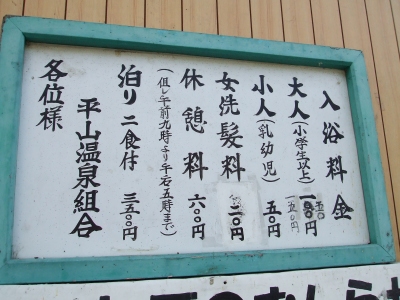 入浴料金
大人(小学生以上)
小人(乳幼児) 五〇円
女洗髪料 二〇円
休憩料 六〇〇円
(但し午前九時より午后五時まで)
泊り二食付 三五〇〇円
平山温泉組合
各位様